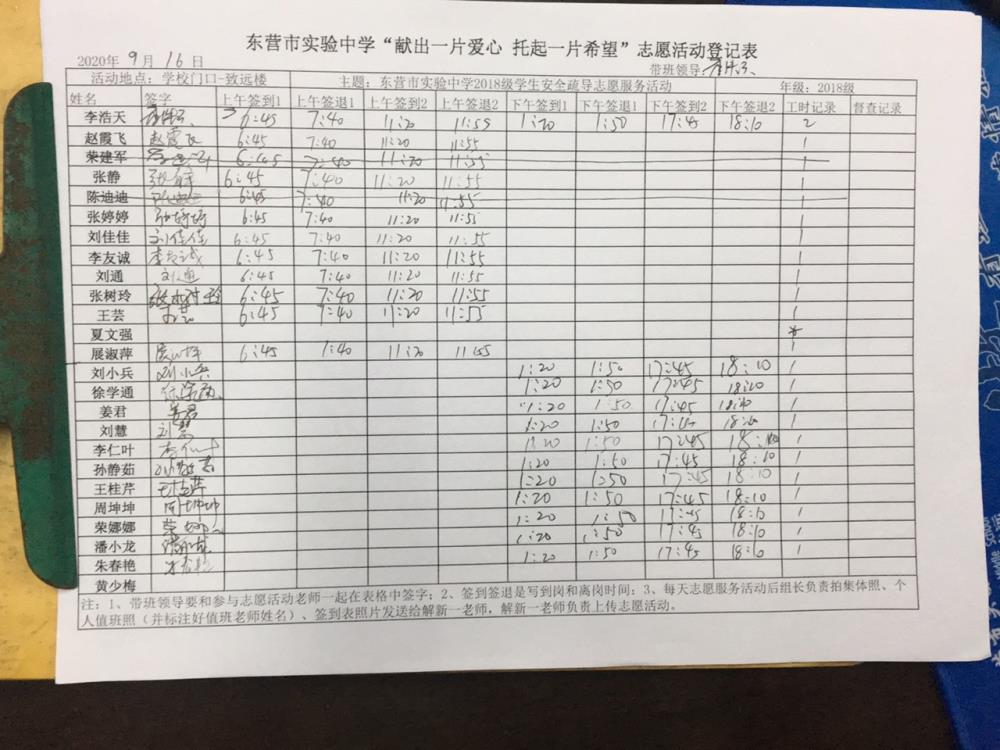 东营市实验中学“献出一片爱心 托起一片希望”志愿活动登记表
2020年 9 月 16 日 带班领导:
活动地点：学校门口-致远楼 主题：东营市实验中学2018级学生安全疏导志愿服务活动 年级：2018级
姓名 签字 上午签到1 上午签退1 上午签到2 上午签退2 下午签到1 下午签退1 下午签到2 下午签退2 工时记录 督查记录
李浩天 6:45 7:40 11:20 11:55 1:20 1:50 17:45 18:10 2
赵霞飞 赵霞飞 6:45 7:40 11:20 11:55 1
荣建军 6:45 7:40 11:20 11:55 1
张静 6:45 7:40 11:20 11:55 1
陈迪迪 6:45 7:40 11:20 11:55 1
张婷婷 张婷婷 6:45 7:40 11:20 11:55 1
刘佳佳 刘佳佳 6:45 7:40 11:20 11:55 1
李友诚 李友诚 6:45 7:40 11:20 11:55 1
刘通 刘通 6:45 7:40 11:20 11:55 1
张树玲 张树玲 6:45 7:40 11:20 11:55 1
王芸 王芸 6:45 7:40 11:20 11:55 1
夏文强
展淑萍 6:45 7:40 11:20 11:55 1
刘小兵 刘小兵 1:20 1:50 17:45 18:10 1
徐学通 1:20 1:50 17:45 18:10 1
姜君 姜君 1:20 1:50 17:45 18:10 1
刘慧 刘慧 1:20 1:50 17:45 18:10 1
李仁叶 1:20 1:50 17:45 18:10 1
孙静茹 1:20 1:50 17:45 18:10 1
王桂芹 1:20 1:50 17:45 18:10 1
周坤坤 周坤坤 1:20 1:50 17:45 18:10 1
荣娜娜 1:20 1:50 17:45 18:10 1
潘小龙 1:20 1:50 17:45 18:10 1
朱春艳 1:20 1:50 17:45 18:10 1
黄少梅
注：1、带班领导要和参与志愿活动老师一起在表格中签字；2、签到签退是写到岗和离岗时间；3、每天志愿服务活动后组长负责拍集体照、个
人值班照（并标注好值班老师姓名）、签到表照片发送给解新一老师，解新一老师负责上传志愿活动。